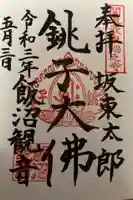 奉拝 坂東太郎
銚子大佛
令和三年 飯沼観音
五月三日